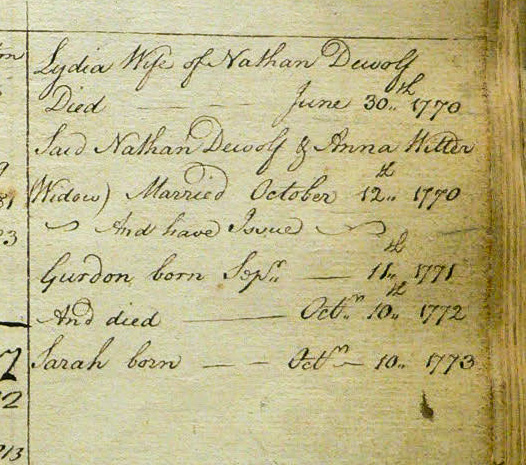 Lydia Wife of Nathan Dewolf
Died — — — June 30th 1770
Said Nathan Dewolf & Anna Witter
(Widow) Married October 12th 1770
~ And have Issue ~
Gurdon born Sepr — 11th 1771
And died — Octr 10th 1772
Sarah born — — Octr — 10 1773